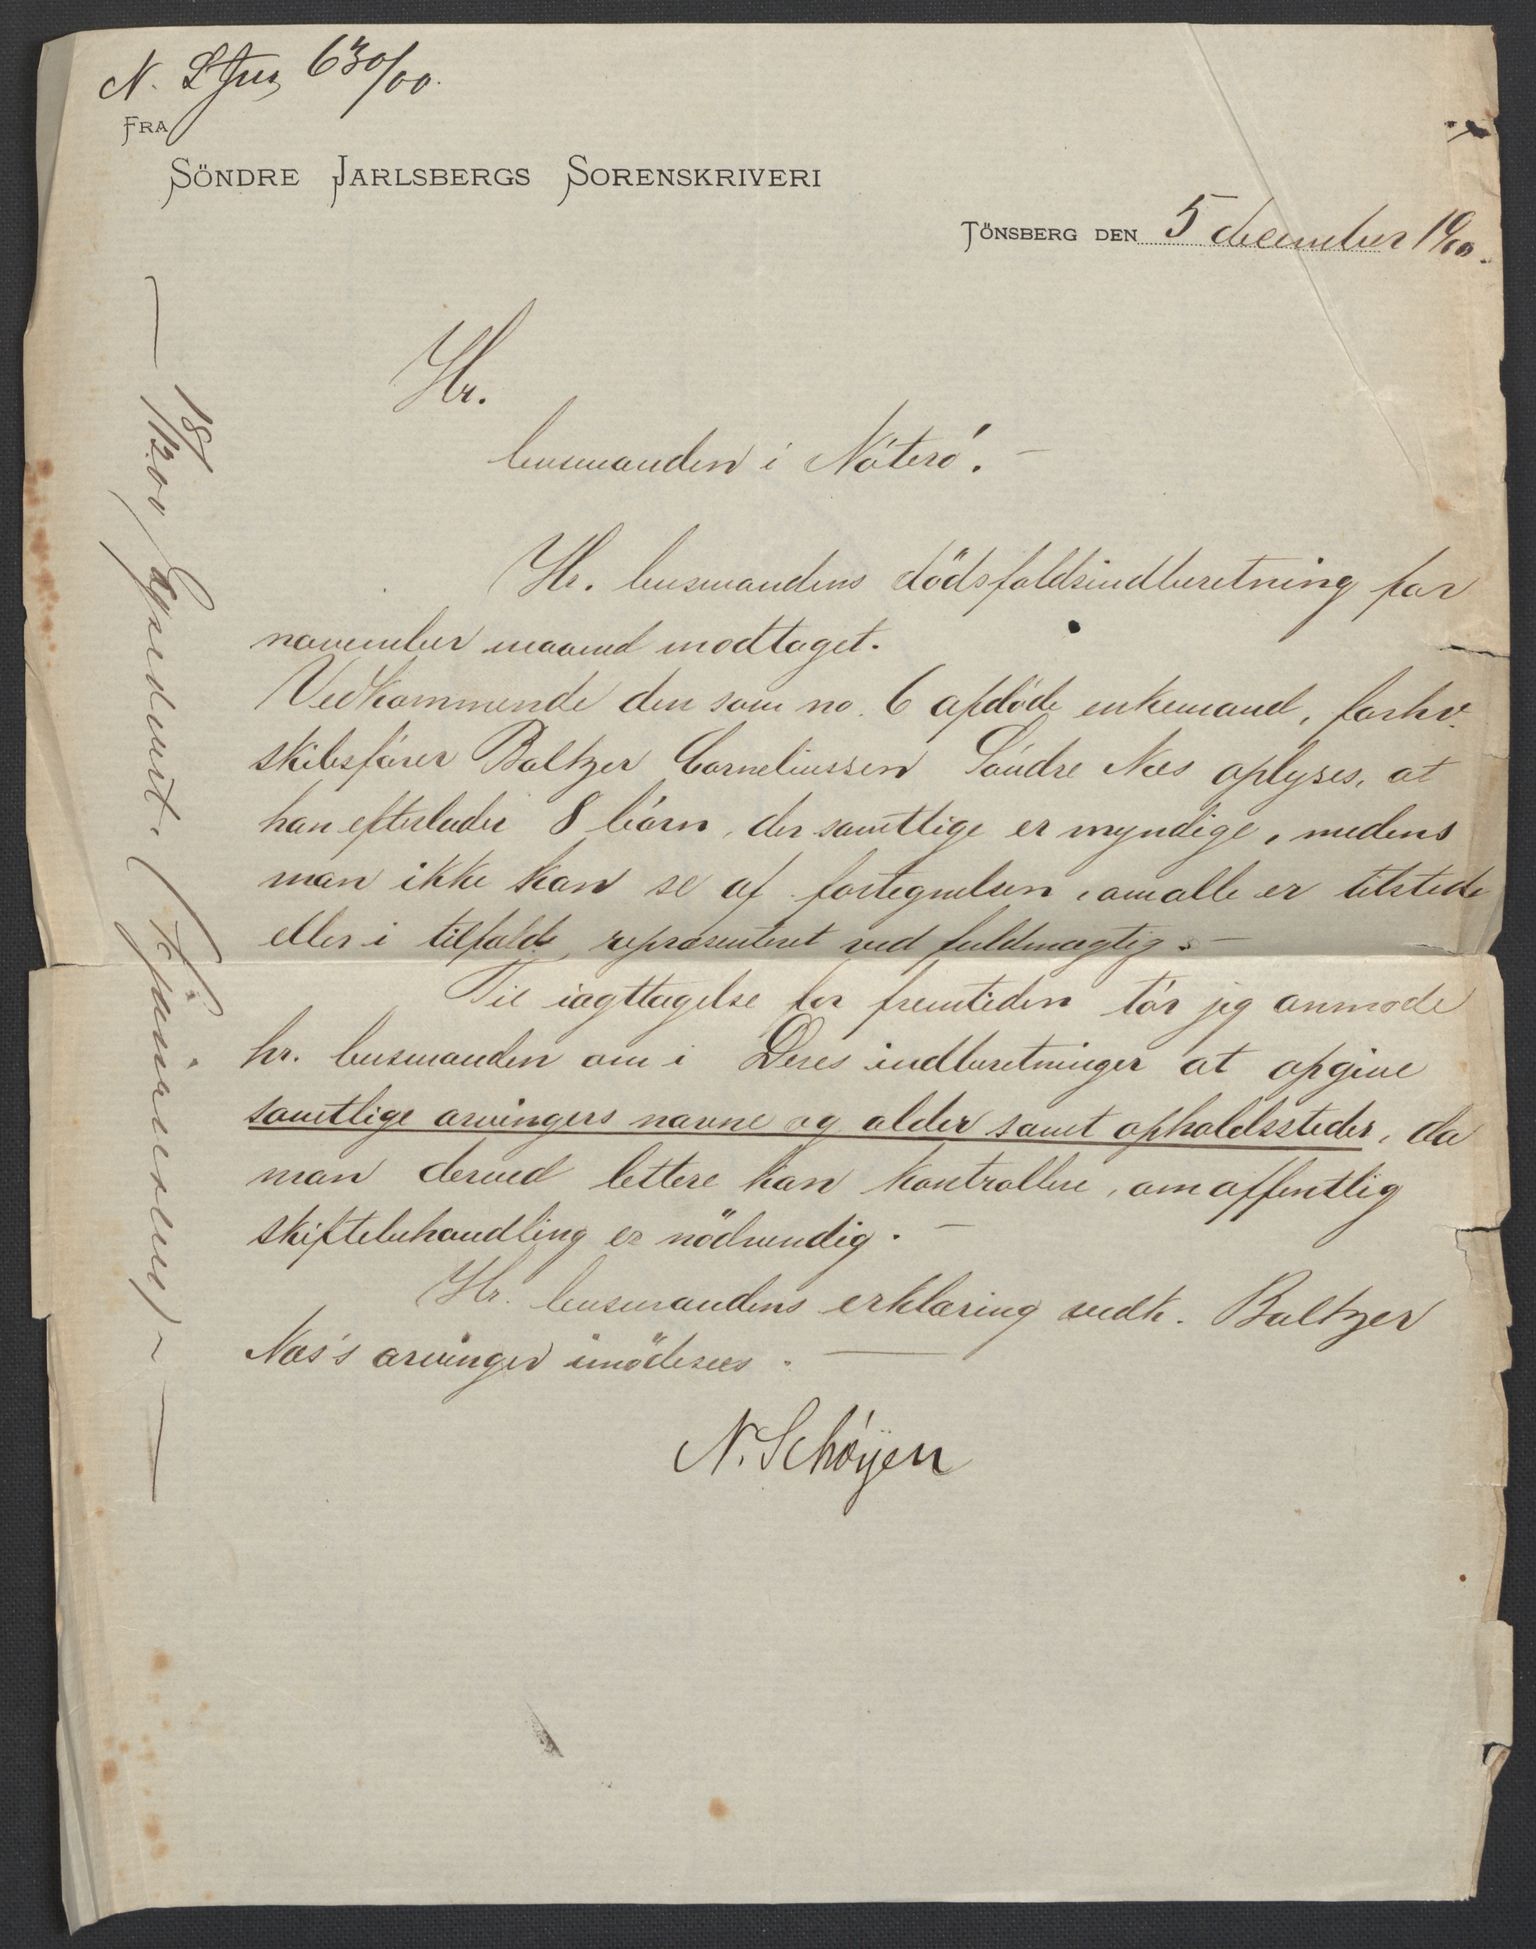 N. L Jnr 630/00.
FRA
SÖNDRE JARLSBERGS SORENSKRIVERI
TÖNSBERG DEN 5 december 1900.
Hr.
lensmanden i Nóteró.
Hr. lensmandens dödsfaldsindberetning for
november maaned modtaget.
Vedkommende den som no. 6 afdöde enkemand, forhv.
skibsfórer Baltzer Corneliussen Sóndre Næs oplyses, at
han efterlader 8 börn, der samtlige er myndige, medens
man ikke kan se af fortegnelsen, om alle er tilstede
eller i tilfælde repræsenteret ved fuldmægtig. –
Til iagttagelse for fremtiden tór jeg anmode
hr. lensmanden om i Deres indberetninger at opgive
samtlige arvingers navne og alder samt opholdssteder, da
man derved lettere kan kontrollere, om offentlig
skiftebehandling er nödvendig. –
Hr. lensmandens erklæring vedk. Baltzer
Næs's arvinger imödesees. –
N. Schóyen
– 18/12 00 Expederet.